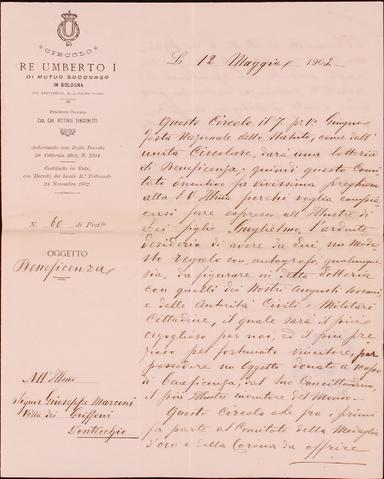 CIRCOLO
RE UMBERTO I
DI MUTUO SOCCORSO
IN BOLOGNA
Presidente Onorario
Cav. VITTORIO SANGUINETTI
Autorizzato con Reale Decreto
28 Febbraio 1901, N. 3304
Costituito in Ente,
con Decreto del locale R.° Tribunale
24 Novembre 1902.
N. 60 di Prot.llo
OGGETTO
Beneficenza
All' Illmo
Signor Giuseppe Marconi
Villa dei Griffoni
Pontecchio
Li 12 Maggio 1902
Questo Circolo il 7 p.° v.° Giugno
festa Nazionale dello Statuto, come dall'
unita Circolare, darà una lotteria
di Beneficenza; quindi questo Comi
tato esecutivo fa vivissima preghiera
alla S.V. Illma perchè voglia compia
cersi fare espresso all' Illustre di
Lei figlio Guglielmo, l'ardente
desiderio di avere da Lui, un mode
sto regalo con autografo, qualunque
sia, da figurare in detta lotteria
con quelli dei Nostri Augusti Sovrani
e delle Autorità Civili e Militari
Cittadine, il quale sarà il più
orgoglioso per noi, ed il più pre
gioso pel fortunato vincitore, per
possedere un Oggetto donato a scopo
di beneficenza, dal Suo Concittadino,
il più Illustre inventore del Mondo.
Questo Circolo che fra i primi
fa parte al Comitato della Medaglia
d'oro e della Corona da offrire